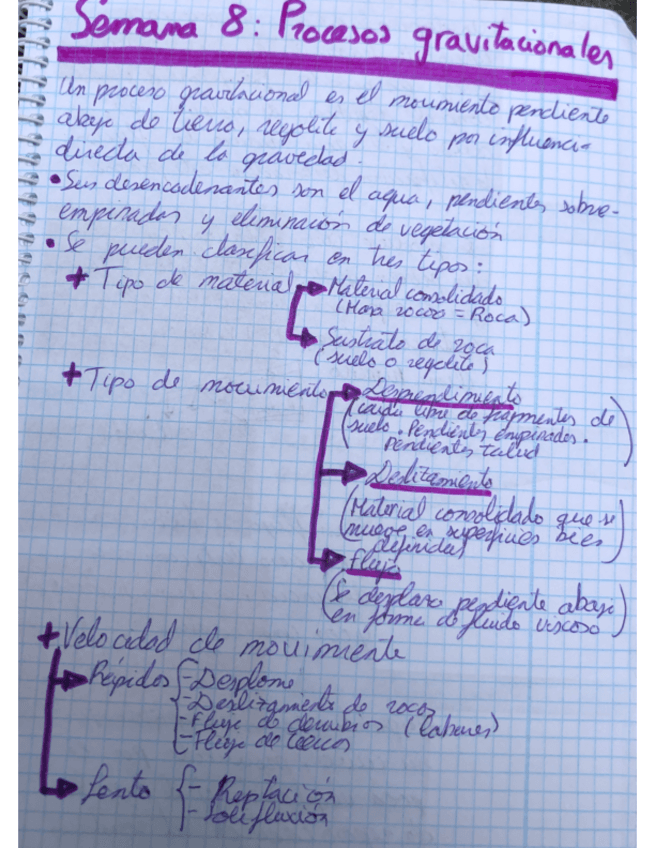 Semana 8: Procesos gravitacionales
Un proceso gravitacional es el movimiento pendiente
abajo de tierra, regolito y suelo por influencia
directa de la gravedad.
• Sus desencadenantes son el agua, pendientes sobre-
empinadas y eliminación de vegetación
• Se pueden clasificar en tres tipos:
+ Tipo de material
Material consolidado
(Masa rocosa = Roca)
Sustrato de roca
(suelo o regolito)
+ Tipo de movimiento
Desprendimiento
(caída libre de fragmentos de
suelo. Pendientes empinadas.
pendientes talud)
Deslizamiento
(Material consolidado que se
mueve en superficies bien
definidas)
Flujo
(Se desplaza pendiente abajo
en forma de fluido viscoso)
+ Velocidad de movimiento
Rápidos
- Desplome
- Deslizamiento de rocas
- Flujo de derrubios (lahares)
- Flujo de tierras
Lento
- Reptación
- Solifluxión